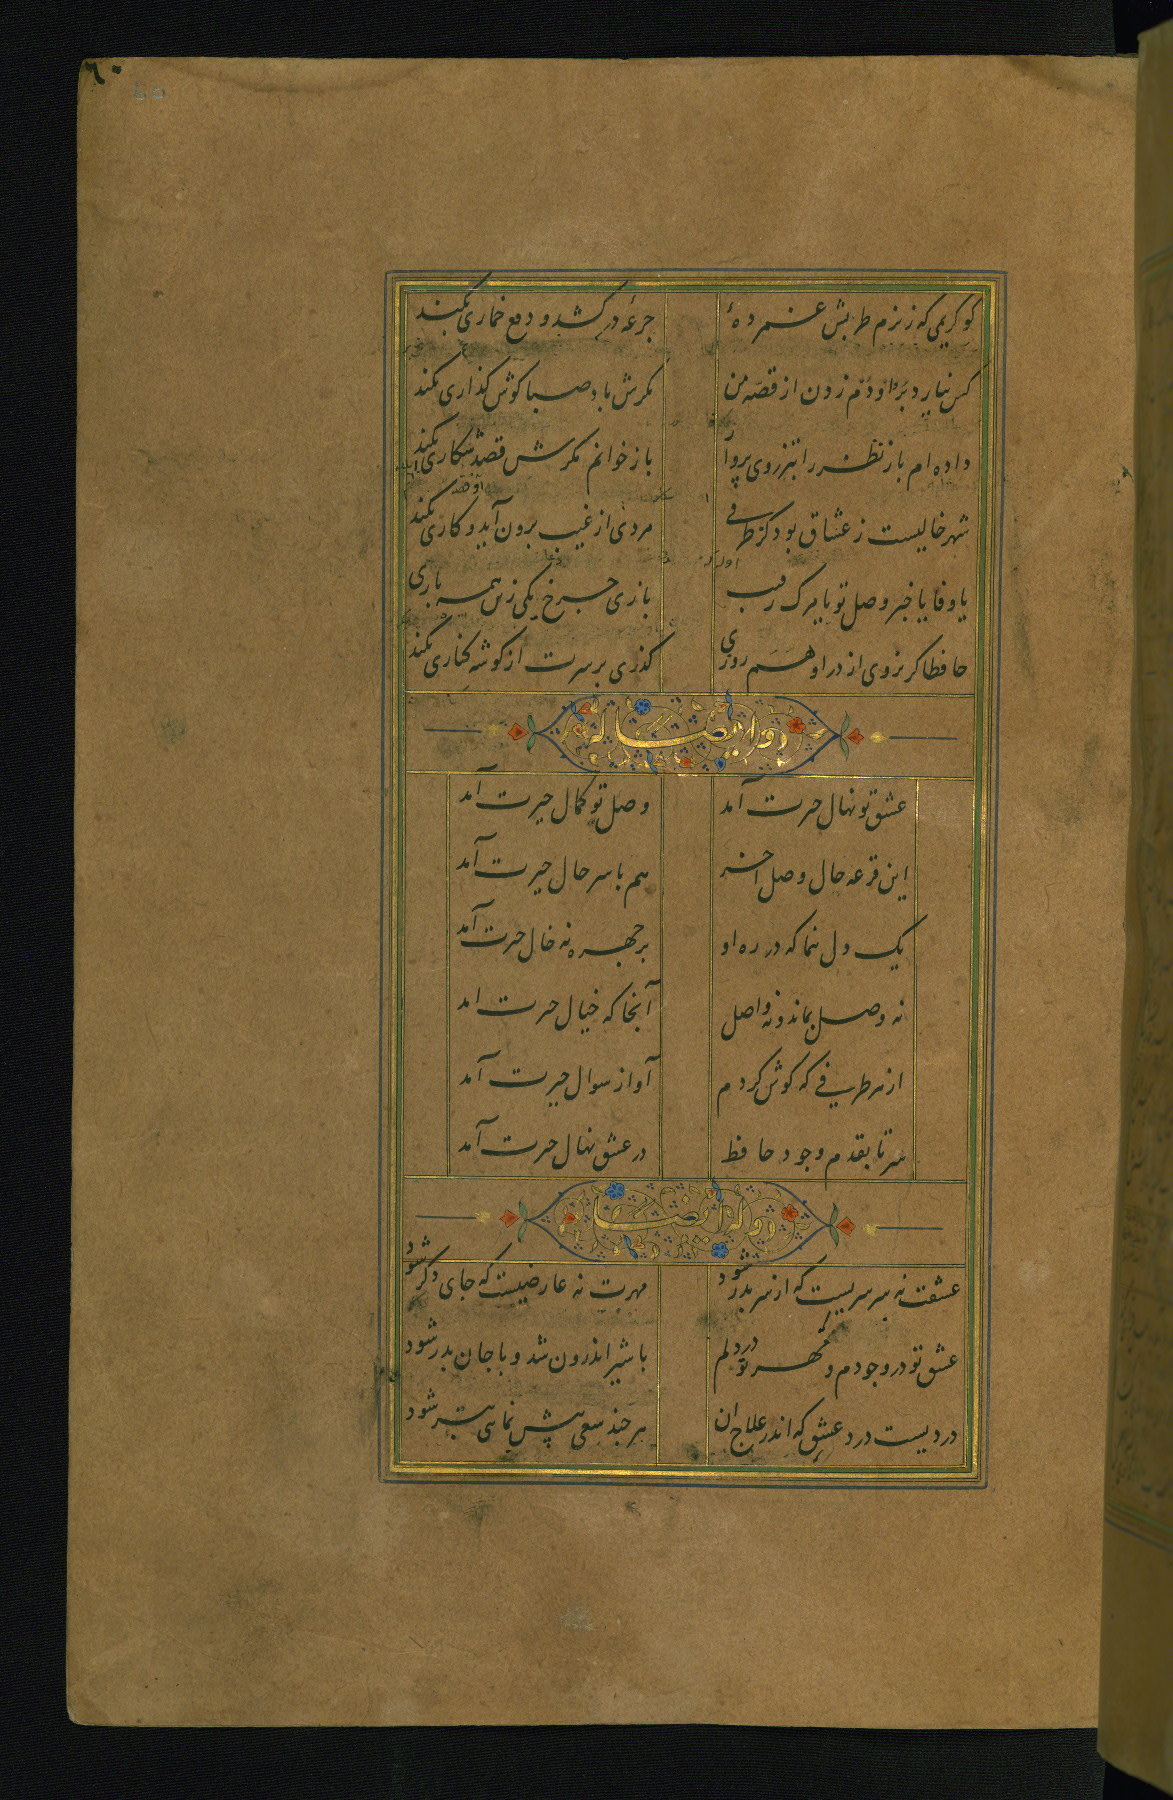 ٦٠
کو کریمی که ز بزم طربش غمزدهٔ جرعهٔ در کشد و دفع خماری بکند
کس نیارد بر او دم زدن از قصه من مکرش باد صبا کوش کذاری بکند
داده ام باز نظر را بتذروی پرواز باز خوانم مکرش قصد شکاری بکند
شهر خالیست ز عشاق بود کز طرفی مردی از غیب برون آید و کاری بکند
یا وفا یا خبر وصل تو یا مرک رقیب بازی چرخ یکی زین همه باری بکند
حافظا کر نروی از در او هم روزی کذری بر سرت از کوشه کناری بکند
وله ایضا
عشق تو نهال حیرت آمد وصل تو کمال حیرت آمد
این قرعه حال وصل آخر هم با سر حال حیرت آمد
یک دل بنما که در ره او بر چهره نه خال حیرت آمد
نه وصل بماند و نه واصل آنجا که خیال حیرت امد
از هر طرفی که کوش کردم آواز سوال حیرت آمد
سر تا بقدم وجود حافظ در عشق نهال حیرت آمد
وله ایضا
عشقت نه سرسریست که از سر بدر شود مهرت نه عارضیست که جای دکر شود
عشق تو در وجودم و مهر تو در دلم با شیر اندرون شد و با جان بدر شود
دردیست درد عشق که اندر علاج ان هر چند سعی پیش نمایی بتر شود